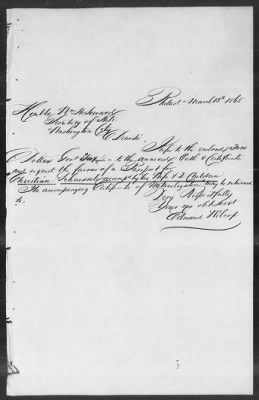 Philad. March 13th 1865
Honble Wm H Seward
Secretary of State
Washington City
D Dear Sir
to the enclosed Two
Dollars Govt to the annexed Oath & Certificate
and request the favor of a Passport for
Christian accompd by his Wife & 2 Children
The accompanying Certificate of Naturalization may be returned
to.
Very Respectfully
Your obt Servt
Edmund Wilcox